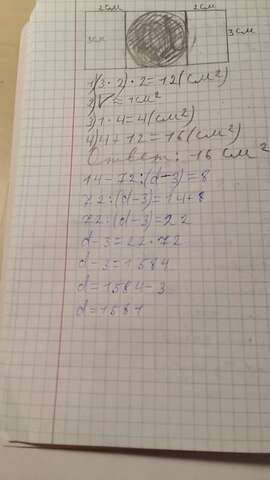 2см 2см
3см 3см
1)(3·2)·2=12(см²)
2) = 1см²
3)1·4=4(см²)
4)4+12=16(см²)
Ответ: 16 см²
14-72:(d-3)=8
72:(d-3)=14+8
72:(d-3)=22
d-3=22·72
d-3=1584
d=1584-3
d=1581